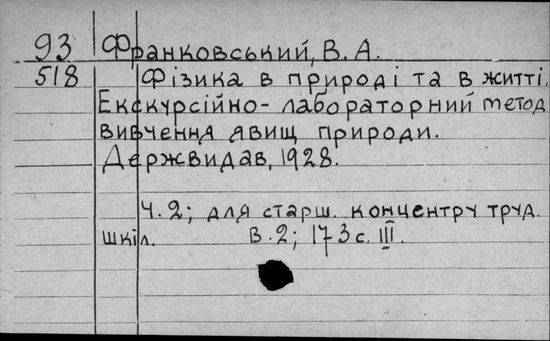 93 Франковський, В. А.
518 Фізика в природі та в житті.
Екскурсійно-лабораторний метод
вивчення явищ природи.
Держвидав, 1928.
Ч.2; для старш. концентру труд.
шкіл. В.2; 173 с. III.